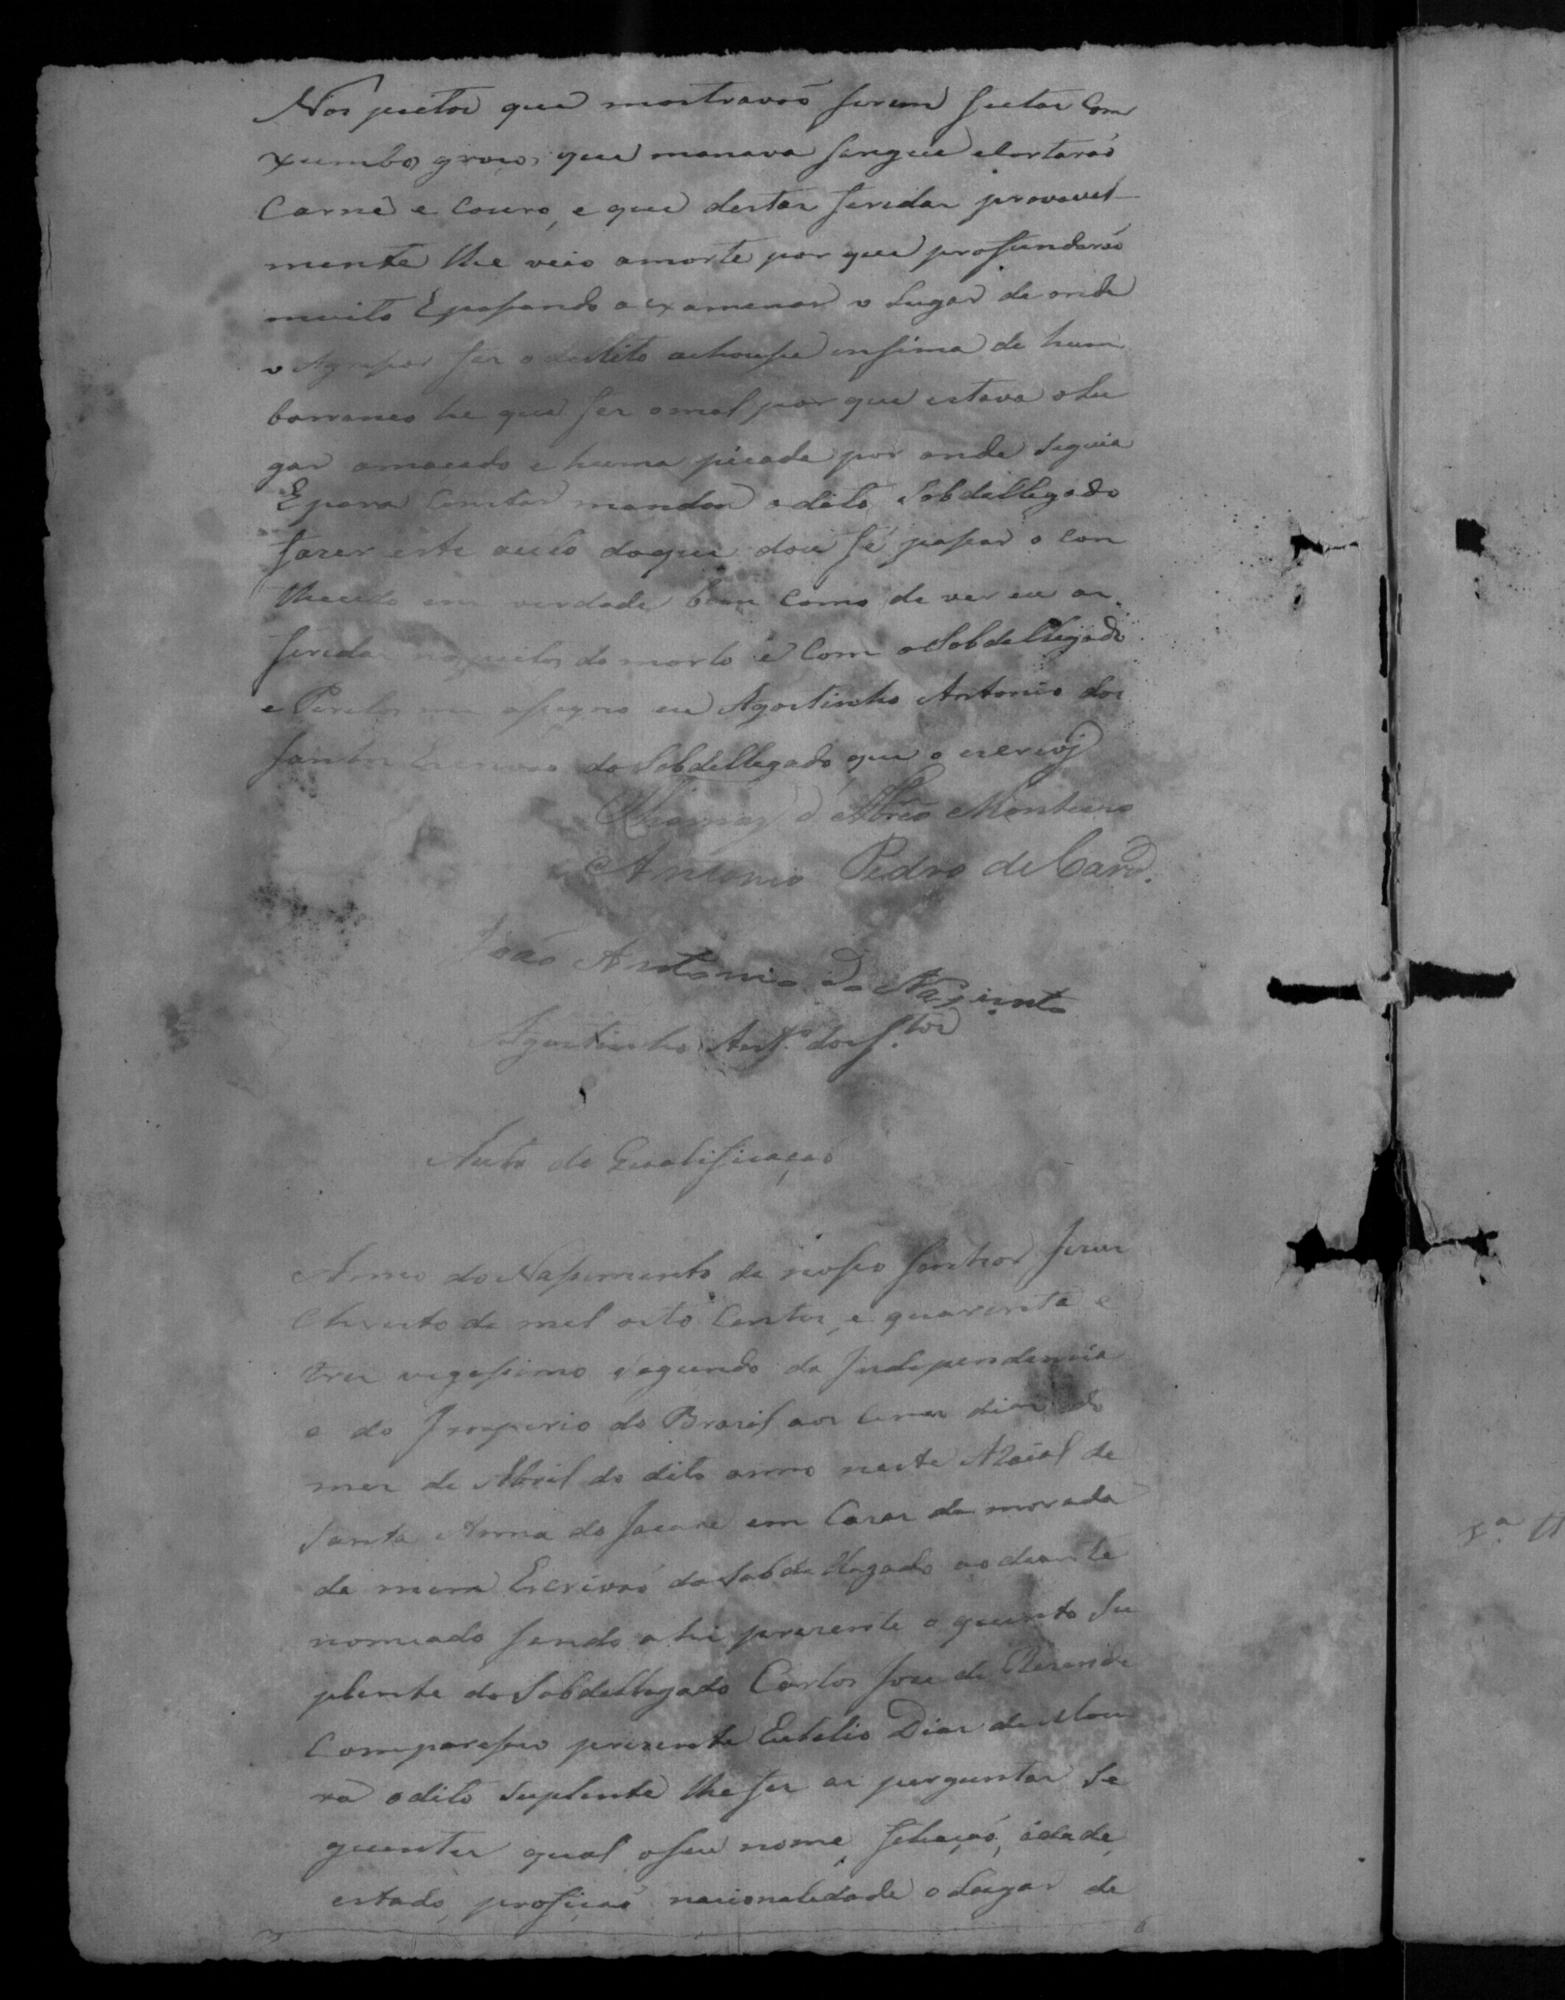 Nos peitos que mostravaõ serem feitas com
xumbo groço, que manava sangue e Cortaraõ
Carne e Couro, e que destas feridas provavel
mente lhe veio amorte por que profundaraõ
muito E pasando a examenar o Lugar de onde
o Agresor fes o delito achouse ensima de hum
barranco he que fes o mal por que estava o lu
gar amaçado e huma picada por onde seguia
E para Constar mandou o dito Sobdellegado
fazer este auto do que dou fé pasar o con
theudo em verdade bem como de ver eu as
feridas nos peitos do morto e Com o Sobdellegado
e Peritos me asigno eu Agostinho Antonio dos
Santos Escrivaõ do Sobdellegado que o escrevj
Thomaz d'Abreo Monteiro
Antonio Pedro de Carv.
João Antonio do Nasimento
Agostinho Antº dos S.tos
Auto de Qualificaçaõ
Anno do Nasimento de noso Senhor Jesus
Christo de mil oito Centos, e quarenta e
tres vegesimo segundo da Independencia
e do Imperio do Brasil aos dias do
mes de Abril do dito anno neste Araial de
Santa Anna do Jacare em Casas de morada
de mim Escrivaõ do Sobdellegado ao diante
nomeado sendo ahi prezente o quinto Su
plente do Sobdellegado Carlos Jose de Resende
Compareseo prezente Eubelio Dias de Mou
ra o dito Suplente lhe fes as perguntas Se
guintes qual o seu nome, feliaçaõ, idade,
estado, profiçaõ nacionalidade o Lugar de